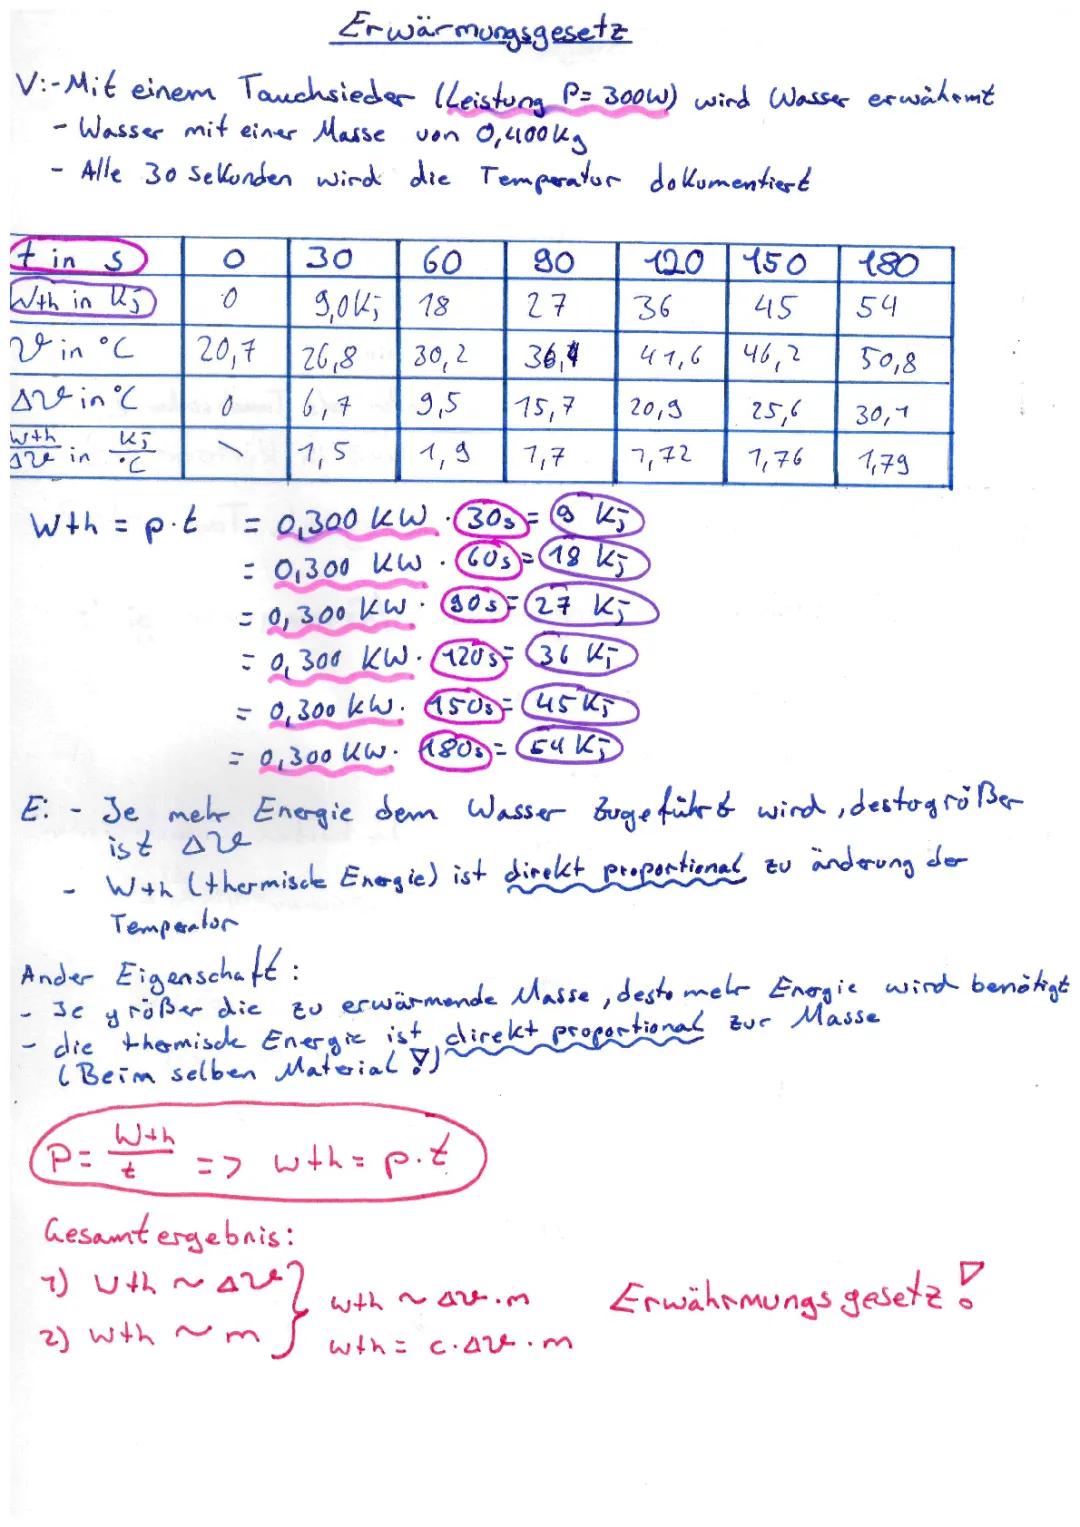 Erwärmungsgesetz
V:-Mit einem Tauchsieder (Leistung P= 300W) wird Wasser erwährmt
- Wasser mit einer Masse von 0,400kg
- Alle 30 Sekunden wird die Temperatur dokumentiert
t in s 0 30 60 90 120 150 180
Wth in Kj 0 9,0Kj 18 27 36 45 54
ϑ in °C 20,7 26,8 30,2 36,4 41,6 46,2 50,8
Δϑ in °C 0 6,7 9,5 15,7 20,9 25,6 30,1
Wth/Δϑ in Kj/°C \ 1,5 1,9 1,7 1,72 1,76 1,79
Wth = p·t = 0,300 KW · 30s = 9 Kj
= 0,300 KW · 60s = 18 Kj
= 0,300 KW · 90s = 27 Kj
= 0,300 KW · 120s = 36 Kj
= 0,300 KW · 150s = 45 Kj
= 0,300 KW · 180s = 54 Kj
E: - Je mehr Energie dem Wasser zugeführt wird, destogrößer
ist Δϑ
- Wth (thermische Energie) ist direkt proportional zu änderung der
Temperatur
Ander Eigenschaft:
- Je größer die zu erwärmende Masse, desto mehr Energie wird benötigt
- die thermische Energie ist direkt proportional zur Masse
(Beim selben Material!)
P = Wth/t => Wth = p·t
Gesamtergebnis:
1) Wth ~ Δϑ
2) Wth ~ m
} Wth ~ Δϑ·m
Wth = c·Δϑ·m
Erwährmungsgesetz!